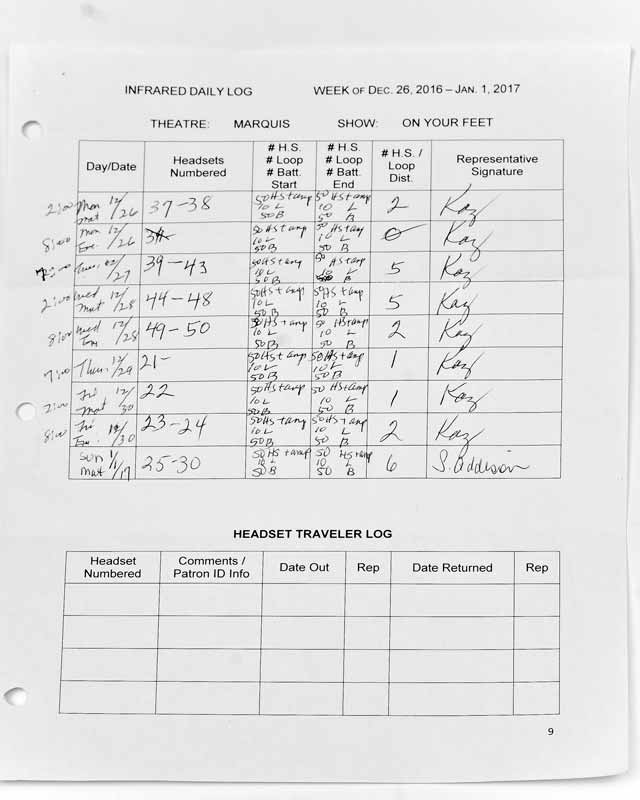 INFRARED DAILY LOG WEEK OF DEC. 26, 2016 – JAN. 1, 2017
THEATRE: MARQUIS SHOW: ON YOUR FEET
Day/Date Headsets Numbered # H.S. # Loop # Batt. Start # H.S. # Loop # Batt. End # H.S. / Loop Dist. Representative Signature
2:00 Mon mat 12/26 37-38 50 HS+amp 10 L 50 B 50 HS+amp 10 L 50 B 2 Kaz
8:00 Mon Eve. 12/26 50 HS+amp 10 L 50 B 50 HS+amp 10 L 50 B 0 Kaz
7:00 Tues. 12/27 39-43 50 HS+amp 10 L 50 B 50 HS+amp 10 L 50 B 5 Kaz
2:00 Wed mat 12/28 44-48 50 HS+amp 10 L 50 B 50 HS+amp 10 L 50 B 5 Kaz
8:00 Wed Eve 12/28 49-50 50 HS+amp 10 L 50 B 50 HS+amp 10 L 50 B 2 Kaz
7:00 Thu. 12/29 21- 50 HS+amp 10 L 50 B 50 HS+amp 10 L 50 B 1 Kaz
2:00 Fri mat 12/30 22 50 HS+amp 10 L 50 B 50 HS+amp 10 L 50 B 1 Kaz
8:00 Fri Eve. 12/30 23-24 50 HS+amp 10 L 50 B 50 HS+amp 10 L 50 B 2 Kaz
Sun mat 1/1/17 25-30 50 HS+amp 10 L 50 B 50 HS+amp 10 L 50 B 6 S. Addison
HEADSET TRAVELER LOG
Headset Numbered Comments / Patron ID Info Date Out Rep Date Returned Rep
9